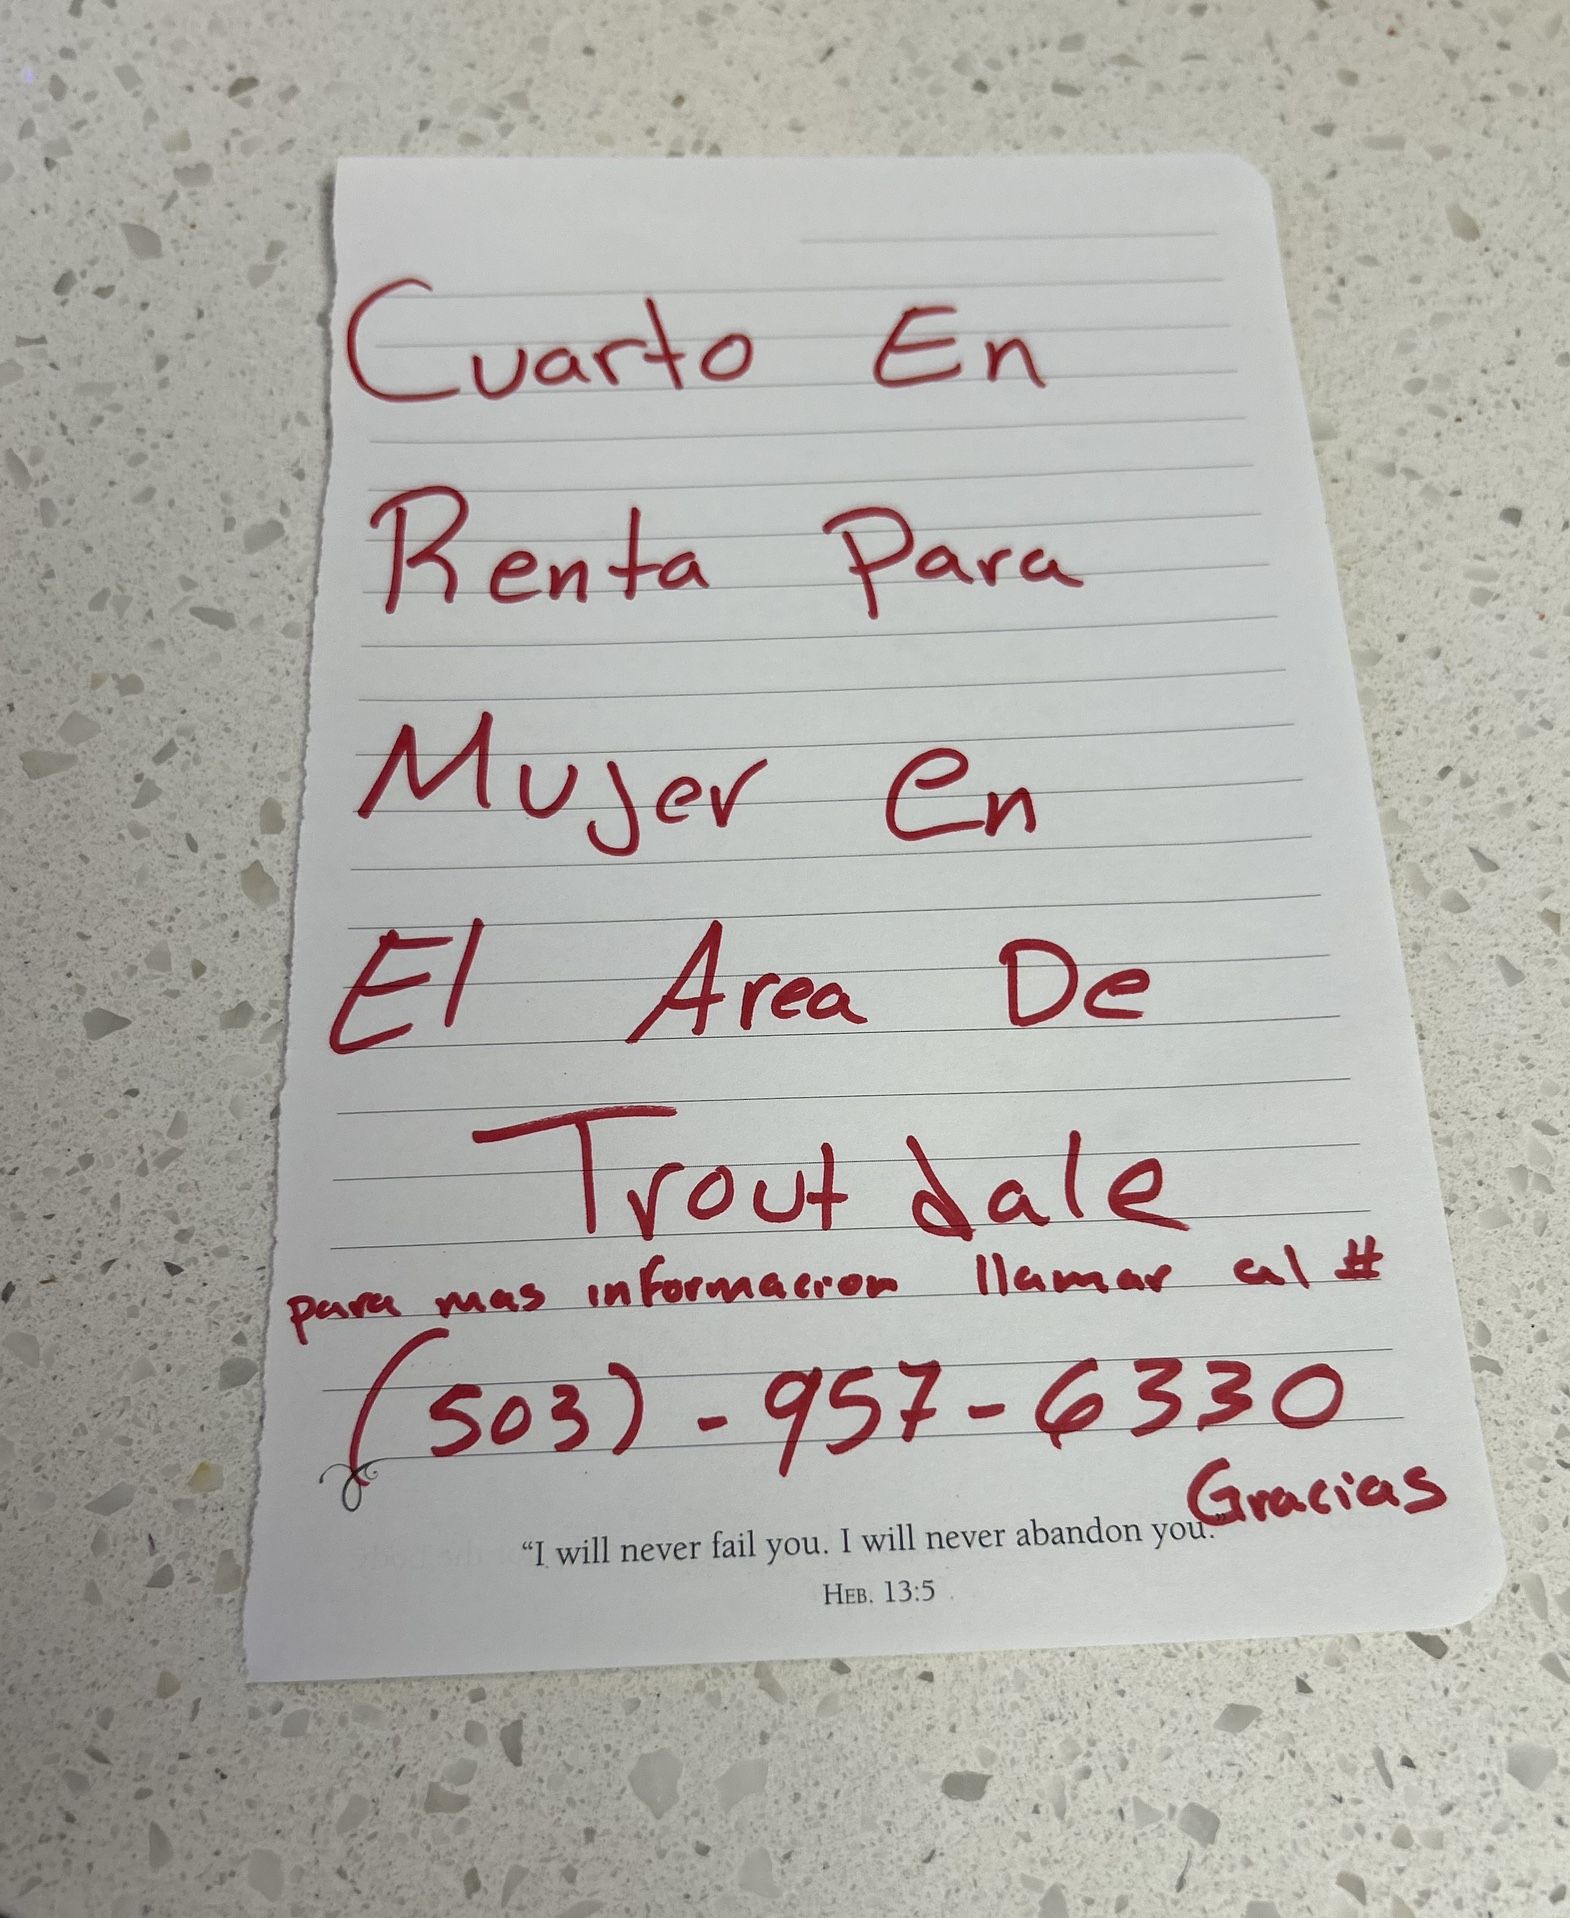 Cuarto En
Renta Para
Mujer en
El Area De
Troutdale
para mas informacion llamar al #
(503) - 957-6330
Gracias
“I will never fail you. I will never abandon you.”
HEB. 13:5